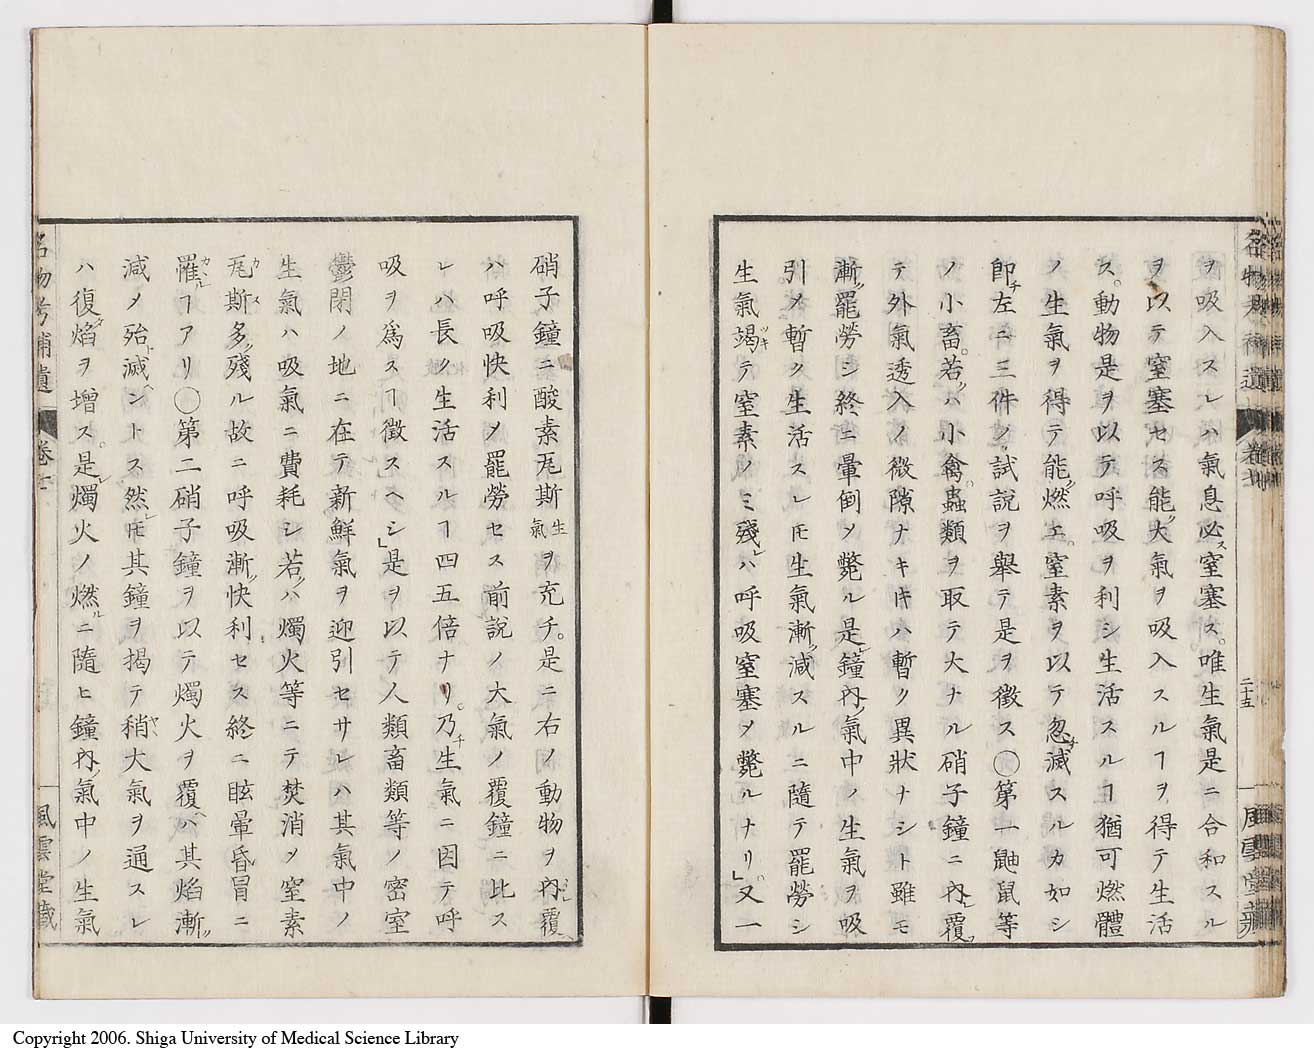 ヲ吸入スレハ氣息必ス窒塞ス。唯生氣是ニ合和スル
ヲ以テ窒塞セス能ク大氣ヲ吸入スルヿヲ得テ生活
ス。動物是ヲ以テ呼吸ヲ利シ生活スルヿ猶可燃體
ノ生氣ヲ得テ能ク燃エ。窒素ヲ以テ忽チ滅スルカ如シ
卽チ左ニ三件ノ試說ヲ舉テ是ヲ徵ス◯第一鼬鼠等
ノ小畜。若クハ小禽蟲類ヲ取テ大ナル硝子鐘ニ內レ覆フ
テ外氣透入ノ微隙ナキ𪜈ハ暫ク異狀ナシト雖モ
漸ク罷勞シ終ニ暈倒メ斃ル是レ鐘內ノ氣中ノ生氣ヲ吸
引メ暫ク生活スレ𪜈生氣漸ク減スルニ隨テ罷勞シ
生氣竭キテ窒素ノミ殘レハ呼吸窒塞メ斃ルナリ。」又一
硝子鐘ニ酸素瓦斯生氣ヲ充チ。是ニ右ノ動物ヲ內レ覆
ハ呼吸快利メ罷勞セス前說ノ大氣ノ覆鐘ニ比ス
レハ長ク生活スルヿ四五倍ナリ。乃チ生氣ニ因テ呼
吸ヲ爲スヿ徵スヘシ」是ヲ以テ人類畜類等ノ密室
鬱閉ノ地ニ在テ新鮮氣ヲ迎引セサレハ其氣中ノ
生氣ハ吸氣ニ費耗シ若クハ燭火等ニテ焚消メ窒素
瓦斯多ク殘ル故ニ呼吸漸ク快利セス終ニ眩暈昏冒ニ
罹ルヿアリ◯第二硝子鐘ヲ以テ燭火ヲ覆ヘハ其焰漸ク
減メ殆滅ントス然レ𪜈其鐘ヲ揭テ稍大氣ヲ通スレ
ハ復焰ヲ增ス。是レ燭火ノ燃ルニ隨ヒ鐘內ノ氣中ノ生氣
名物考補遺
卷
二十五
風雲堂藏
名物考補遺
卷
風雲堂藏
Copyright 2006. Shiga University of Medical Science Library